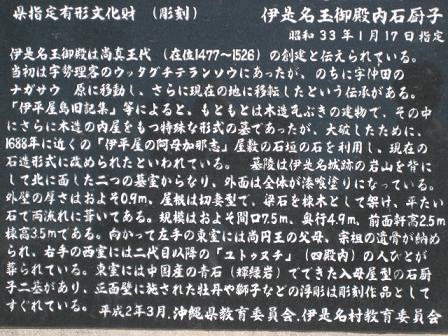 県指定有形文化財 (彫刻) 伊是名玉御殿内石厨子
昭和33年1月17日指定
伊是名玉御殿は尚真王代(在位1477〜1526)の創建と伝えられている。
当初は字勢理客のウッタグチテランソウにあったが、のちに字仲田の
ナガサウ原に移動し、さらに現在の地に移転したという伝承がある。
「伊平屋島旧記集」等によると、もともとは木造瓦ぶきの建物で、その中
にさらに木造の内屋をもつ特殊な形式の墓であったが、大破したために、
1688年に近くの「伊平屋の阿母加那志」屋敷の石垣の石を利用し、現在の
石造形式に改められたといわれている。 墓陵は伊是名城跡の岩山を背に
して北に面した二つの墓室からなり、外面は全体が漆喰塗りになっている。
外壁の厚さはおよそ0.9m、屋根は切妻型で、梁石を棟木として架け、平たい
石で両流れに葺いてある。規模はおよそ間口7.5m、奥行4.9m、前面軒高2.5m
棟高3.5mである。向かって左手の東室には尚円王の父母、宗祖の遺骨が納め
られ、右手の西室には二代目以降の「ユトゥヌチ」(四殿内)の人びとが
葬られている。東室には中国産の青石(輝緑岩)でできた入母屋型の石厨
子二基があり、正面壁に施された牡丹や獅子などの浮彫は彫刻作品として
すぐれている。 平成2年3月、沖縄県教育委員会、伊是名村教育委員会